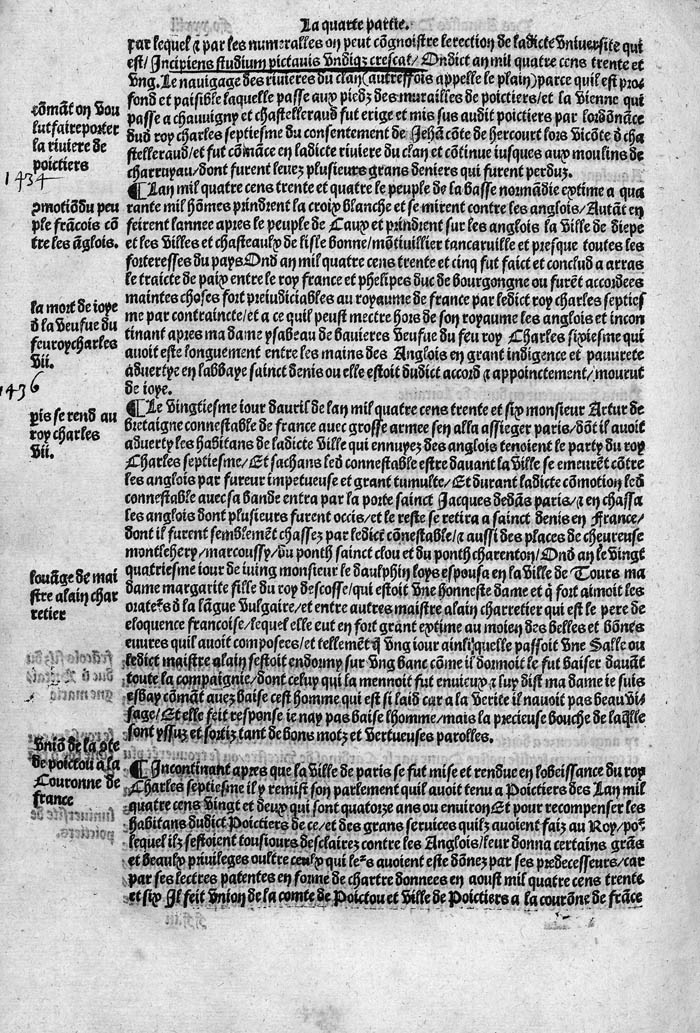 La quarte partie.
par lequel & par les numeralles on peut cõgnoistre lerection de ladicte Vniuersite qui
est/ Incipiens studium pictauis Vndiqz crescat/ Ondict an mil quatre cens trente et
Vng. Le nauigage des riuieres du clan (autreffois appelle le plain) parce quil est pro⸗
fond et paisible laquelle passe aux piedz des murailles de poictiers/et la Vienne qui
passe a chauuigny et chastelleraud fut erige et mis sus audit poictiers par lordõnãce
dud roy charles septiesme du consentement de Jehã cõte de hercourt lors Vicõte d cha
stelleraud/et fut cõmãce en ladicte riuiere du clan et cõtinue iusques aux moulins de
charruyau/dont furent leuez plusieurs grans deniers qui furent perduz.
cõmãt on Vou
lut faire porter
la riuiere de
poictiers
1434
¶Lan mil quatre cens trente et quatre le peuple de la basse normãdie extime a qua
rante mil hõmes prindrent la croix blanche et se mirent contre les anglois/Autãt en
feirent lannee apres le peuple de Caux et prindrent sur les anglois la Ville de diepe
et les Villes et chasteaulx de lisle bonne/mõtiuillier tancaruille et presque toutes les
forteresses du pays Ond an mil quatre cens trente et cinq fut faict et conclud a arras
le traicte de paix entre le roy france et phelipes duc de bourgongne ou furẽt accordees
maintes choses fort preiudiciables au royaume de france par ledict roy charles septies
me par contraincte/et a ce quil peust mectre hors de son royaume les anglois et incon
tinant apres ma dame ysabeau de bauieres Veufue du feu roy Charles sixiesme qui
auoit este longuement entre les mains des Anglois en grant indigence et pauurete
aduertye en labbaye sainct denis ou elle estoit dudict accord & appoinctement/mourut
de ioye.
ꝯmotiõ du peu
ple frãcois cõ
tre les ãglois.
la mort de ioye
d la Veufue du
feu roy charles
Vii.
1436
¶Le Vingtiesme iour dauril de lan mil quatre cens trente et six monsieur Artur de
bretaigne connestable de france auec grosse armee sen alla assieger paris/dõt il auoit
aduerty les habitans de ladicte Ville qui ennuyez des anglois tenoient le party du roy
Charles septiesme/Et sachans led connestable estre dauant la Ville se emeurẽt cõtre
les anglois par fureur impetueuse et grant tumulte/Et durant ladicte cõmotion led
connestable auec sa bande entra par la porte sainct Jacques dedãs paris/& en chassa
les anglois dont plusieurs furent occis/et le reste se retira a sainct denis en France/
dont il furent semblemẽt chassez par ledict cõnestable/& aussi des places de cheureuse
montlehery/marcoussy/du ponth sainct clou et du ponth charenton/Ond an le Vingt
quatriesme iour de iuing monsieur le daulphin loys espousa en la Ville de Tours ma
dame margarite fille du roy descosse/qui estoit Vne honneste dame et q̃ fort aimoit les
orateʳs d la lãgue Vulgaire/et entre autres maistre alain charretier qui est le pere de
eloquence francoise/lequel elle eut en fort grant extime au moien des belles et bõnes
euures quil auoit composees/et tellemẽt q̃ Vng iour ainsi quelle passoit Vne Salle ou
ledict maistre alain sestoit endormy sur Vng banc cõme il dormoit le fut baiser dauãt
toute la compaignie/dont celuy qui la mennoit fut enuieux & luy dist ma dame ie suis
esbay cõmãt auez baise cest homme qui est si laid car a la Verite il nauoit pas beau Vi⸗
sage/Et elle feit response ie nay pas baise lhomme/mais la precieuse bouche de laq̃lle
sont yssuz et sortiz tant de bons motz et Vertueuses parolles.
pis se rend au
roy charles
Vii.
louãge de mai
stre alain char
retier
¶Incontinant apres que la Ville de paris se fut mise et rendue en lobeissance du roy
Charles septiesme il y remist son parlement quil auoit tenu a Poictiers des Lan mil
quatre cens Vingt et deux qui sont quatorze ans ou enuiron Et pour recompenser les
habitans dudict Poictiers de ce/et des grans seruices quilz auoient faiz au Roy/poᷣ
lequel ilz sestoient tousiours desclairez contre les Anglois/leur donna certains grãs
et beaulx priuileges oultre ceulx qui leʳs auoient este dõnez par ses predecesseurs/car
par ses lectres patentes en forme de chartre donnees en aoust mil quatre cens trente
et six Il feit Vnion de la comte de Poictou et Ville de Poictiers a la courõne de frãce
Vniõ de la cõte
de poictou a la
Couronne de
france